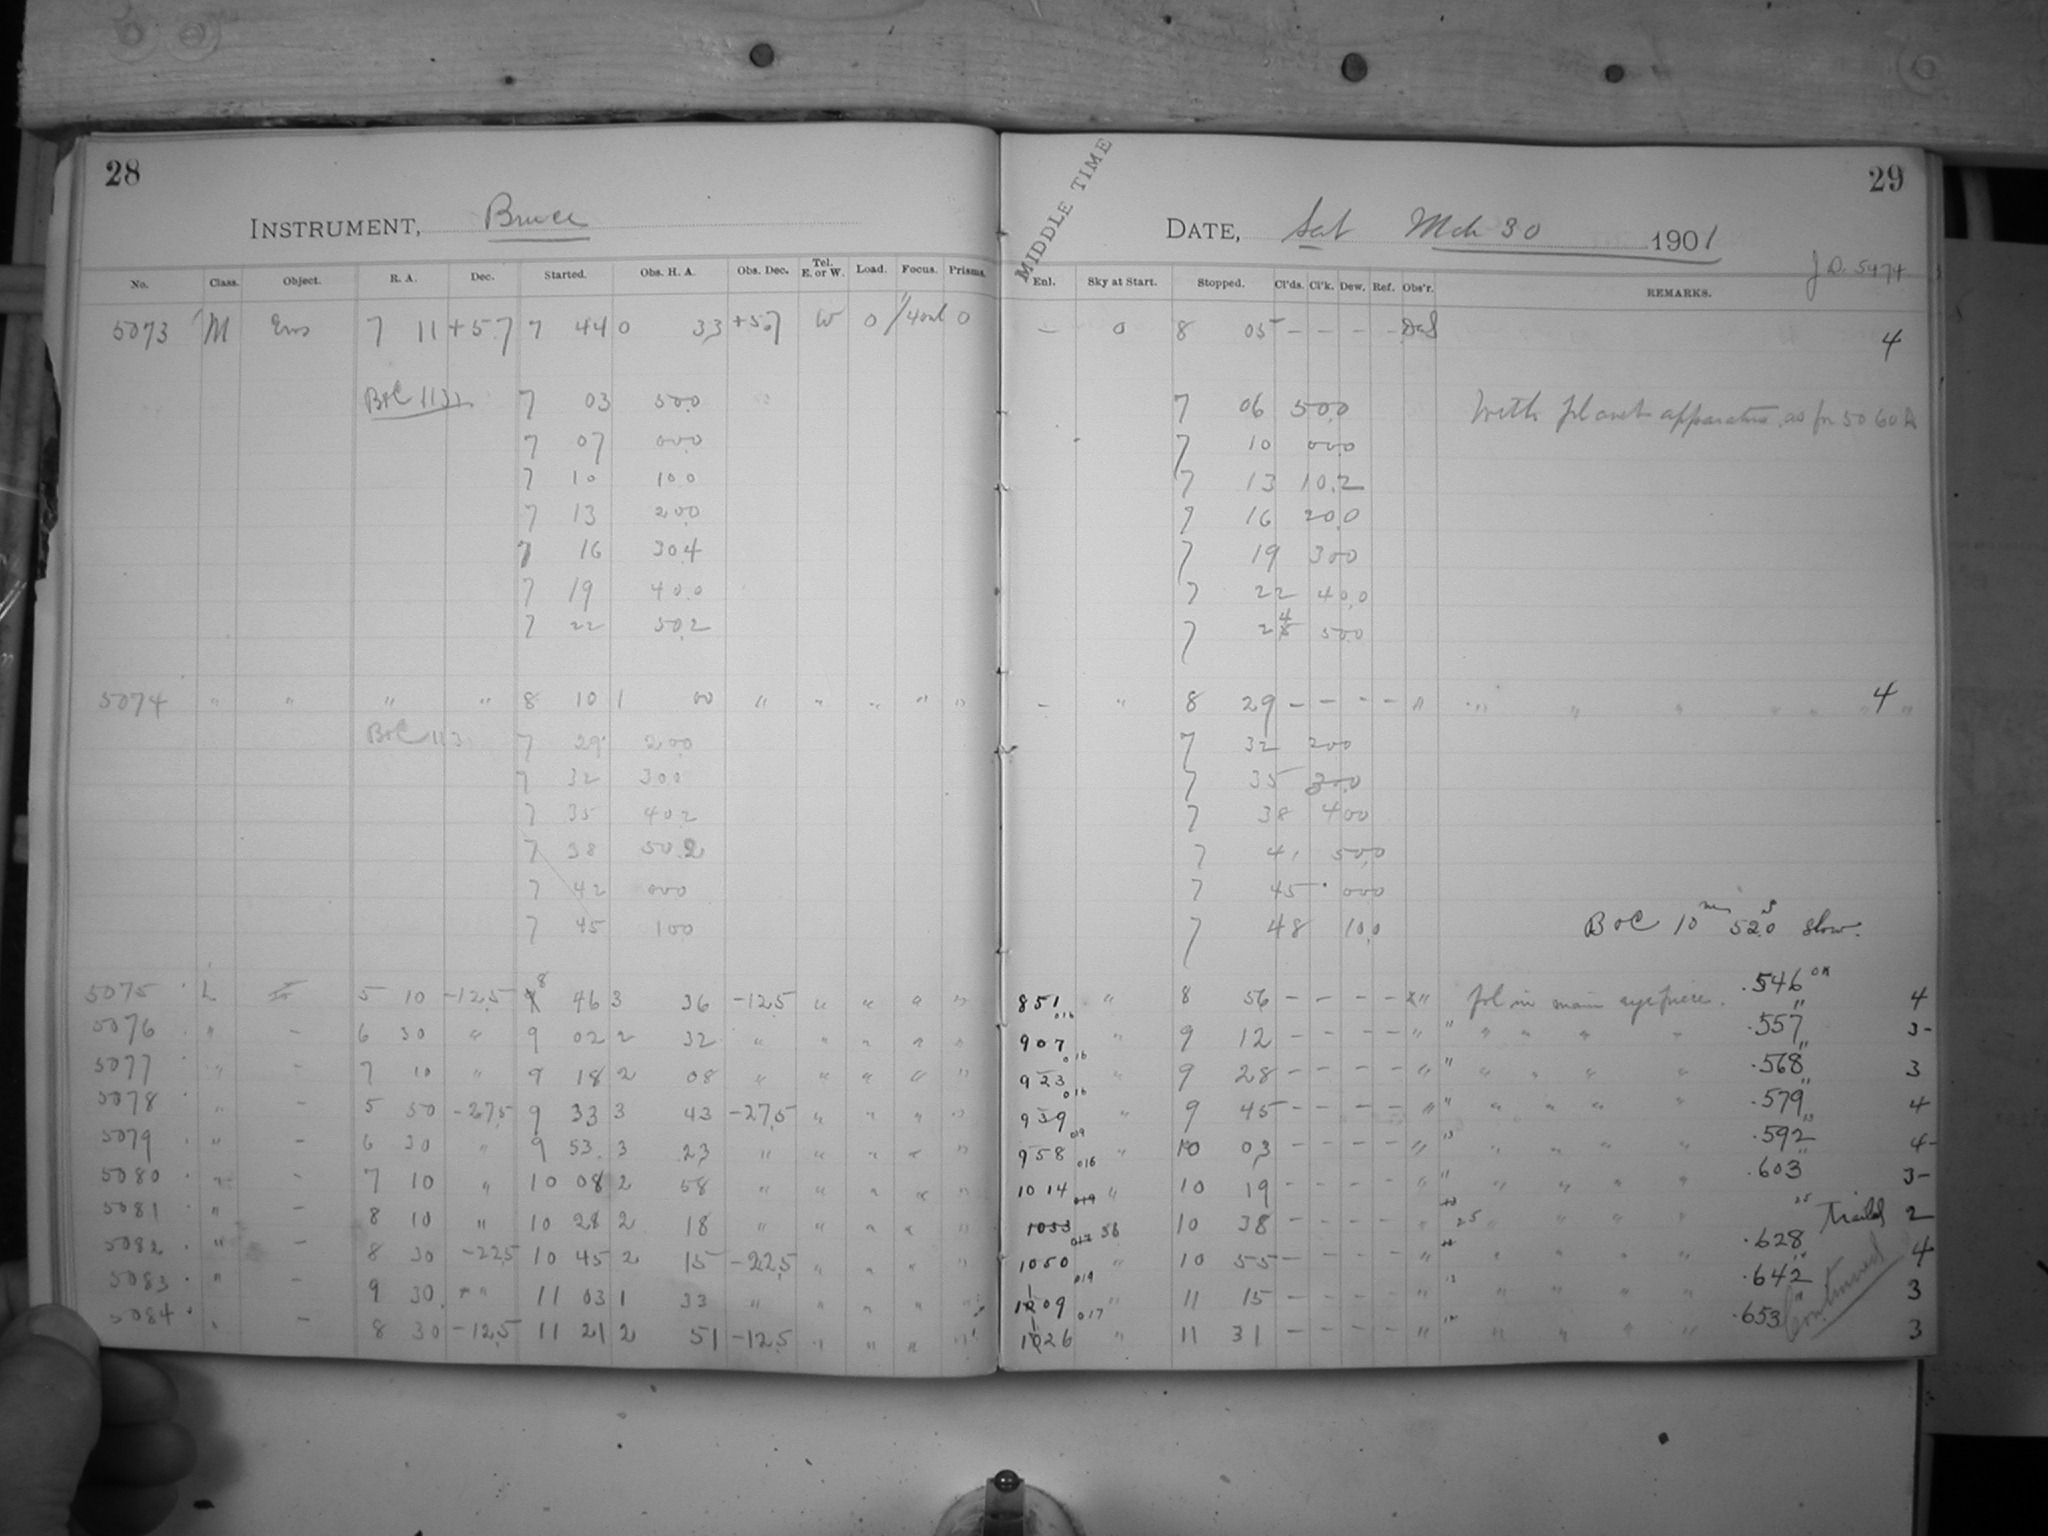 28
INSTRUMENT, Bruce
No. Class. Object. R. A. Dec. Started. Obs. H. A. Obs. Dec. Tel. E. or W. Load. Focus. Prisms.
5073 M Eros 7 11 +5.7 7 44 0 33 +5.7 W 0 0
7 03 50.0
7 07 00.0
7 10 10.0
7 13 20.0
7 16 30.4
7 19 40.0
7 22 50.2
5074 " " " " 8 10 1 00 " " " " "
7 29 20.0
7 32 30.0
7 35 40.2
7 38 50.2
7 42 00.0
7 45 10.0
5075 L 5 10 -12.5 8 46 3 36 -12.5 " " " "
5076 " - 6 30 " 9 02 2 32 " " " " "
5077 " - 7 10 " 9 18 2 08 " " " " "
5078 " - 5 50 -27.5 9 33 3 43 -27.5 " " " "
5079 " - 6 30 " 9 53 3 23 " " " " "
5080 " - 7 10 " 10 08 2 58 " " " " "
5081 " - 8 10 " 10 28 2 18 " " " " "
5082 " - 8 30 -22.5 10 45 2 15 -22.5 " " " "
5083 " - 9 30 " 11 03 1 33 " " " " "
5084 " - 8 30 -12.5 11 21 2 51 -12.5 " " " "
29
MIDDLE TIME
DATE, Sat Mch 30 1901
J.D. 5474
Enl. Sky at Start. Stopped. Cl'ds. Cl'k. Dew. Ref. Obs'r. REMARKS.
- 0 8 05 - - - - 4
7 06 50.0 With planet apparatus as for 5060
7 10 00.0
7 13 10.2
7 16 20.0
7 19 30.0
7 22 40.0
7 24 50.0
- " 8 29 - - - - " " " " " " " " 4
7 32 20.0
7 35 30.0
7 38 40.0
7 41 50.0
7 45 00.0
7 48 10.0 10m 52.0s slow.
851 016 " 8 56 - - - - " fol in main eyepiece. .546 OK 4
907 016 " 9 12 - - - - " " " " " " .557 " 3-
923 016 " 9 28 - - - - " " " " " " .568 " 3
939 019 " 9 45 - - - - " " " " " " .579 " 4
958 016 " 10 03 - - - - " " " " " " .592 " 4-
1014 019 " 10 19 - - - - " " " " " " .603 " 3-
1033 017 10 38 - - - - " 25 " " " " 25 Trailed 2
1050 019 " 10 55 - - - - " " " " " .628 4
1109 017 " 11 15 - - - - " " " " " " .642 " 3
1126 " 11 31 - - - - " " " " " " .653 " 3
Continued